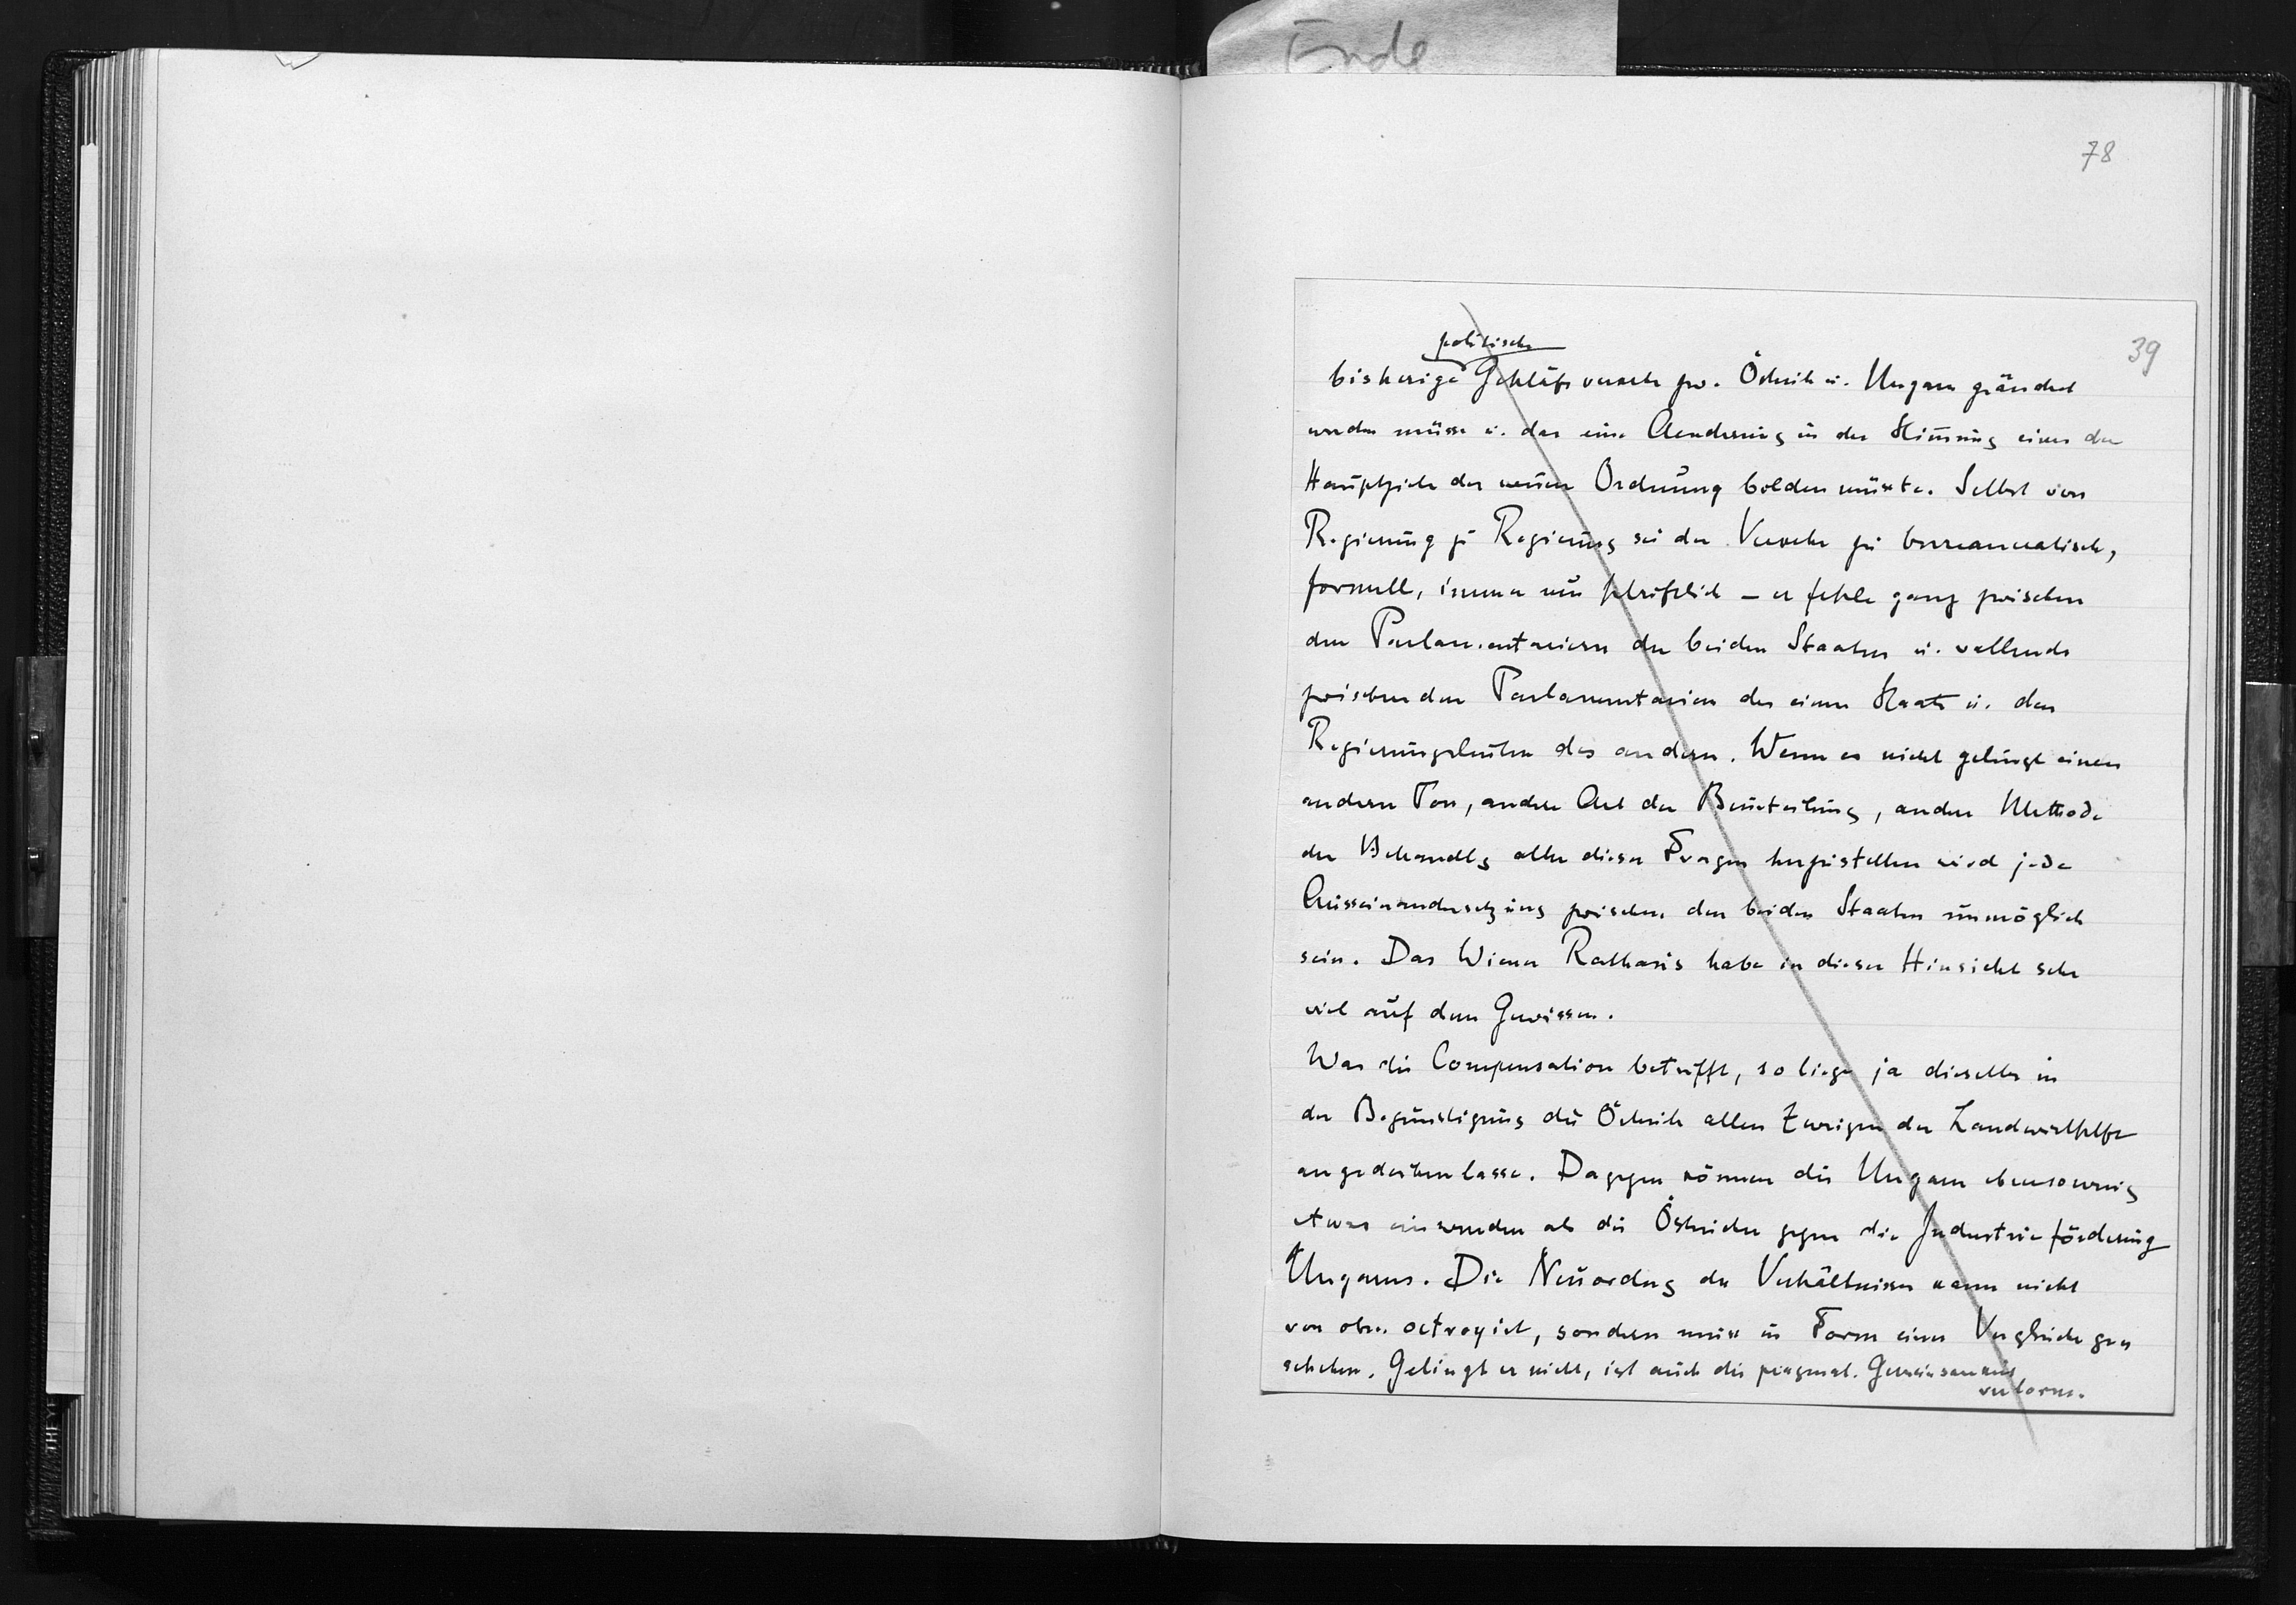 Ende
78
39
politische
bisherige Geschäftsverkehr zw. Östreich u. Ungarn geändert
werden müsse u. das eine Aenderung in der Stimmung eines der
Hauptziele der neuen Ordnung bilden müsste. Selbst von
Regierung zu Regierung sei der Verkehr zu bureaucratisch,
formell, immer nur schriftlich – er fehle ganz zwischen
den Parlamentariern der beiden Staaten u. vollends
zwischen den Parlamentarien des einen Staats u. den
Regierungsleuten des andern. Wenn es nicht gelingt einen
andern Ton, andere Art der Beurteilung, andere Methode
der Behandlg aller dieser Fragen herzustellen wird jede
Auseinandersetzung zwischen den beiden Staaten unmöglich
sein. Das Wiener Rathaus habe in dieser Hinsicht sehr
viel auf dem Gewissen.
Was die Compensation betrifft, so liege ja dieselbe in
der Begünstigung die Östreich allen Zweigen der Landwirthschft
angedeihen lasse. Dagegen können die Ungarn ebensowenig
etwas einwenden als die Östreicher gegen die Industrieförderung
Ungarns. Die Neuordng der Verhältnisse kann nicht
von oben octroyirt, sondern muss in Form eines Vergleichs ge=
schehen. Gelingt er nicht, ist auch die pragmat. Gemeinsamkeit
verloren.